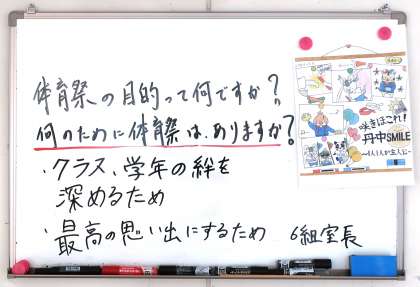 体育祭の目的って何ですか?
何のために体育祭は、ありますか?
・クラス、学年の絆を
深めるため
・最高の思い出にするため 6組室長
咲きほこれ!
丹中SMILE
~1人1人が主人公~